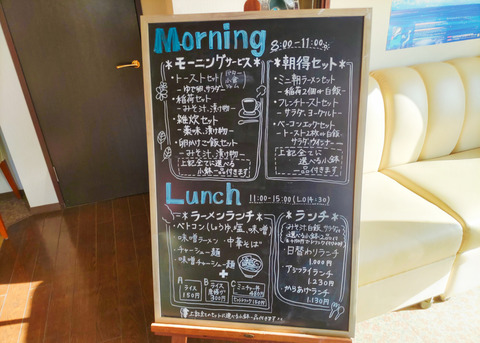 Morning 8:00-11:00
*モーニングサービス*
・トーストセット(バター 小倉 ジャム)
-ゆで卵,サラダ-
・稲荷セット
-みそ汁,漬け物-
・雑炊セット
-薬味,漬け物-
・卵かけご飯セット
-みそ汁,漬け物-
上記全てに選べる
小鉢一品付きます
*朝得セット*
・ミニ朝ラーメンセット
-稲荷2個or白飯-
・フレンチトーストセット
-サラダ,ヨーグルト-
・ベーコンエッグセット
-トースト2枚or白飯-
サラダ,ウインナー
上記全てに
選べる小鉢
一品付きます
Lunch 11:00-15:00(L.O14:30)
*ラーメンランチ*
・ベトコン(しょうゆ,塩,味噌)
・味噌ラーメン・中華そば
・チャーシュー麺
・味噌チャーシュー麺
+
A ライス 150円
B ライス 300円
C ミニチャー丼
*ランチ*
みそ汁,白飯,サラダ
選べる小鉢2品付
・日替わりランチ
1,000円
・アジフライランチ
1,230円
・からあげランチ
1,130円
上記全てのセットに選べる小鉢一品付きます